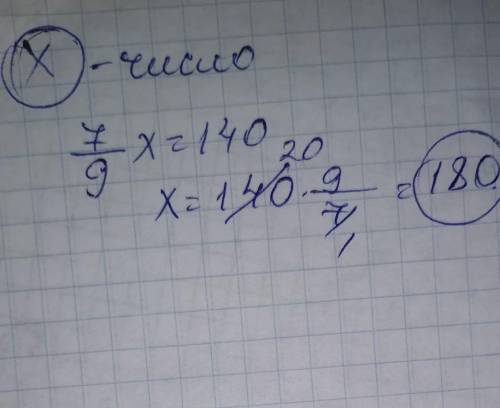 X - число
7/9 x = 140
x = 140 · 9/7 = 180
20
1